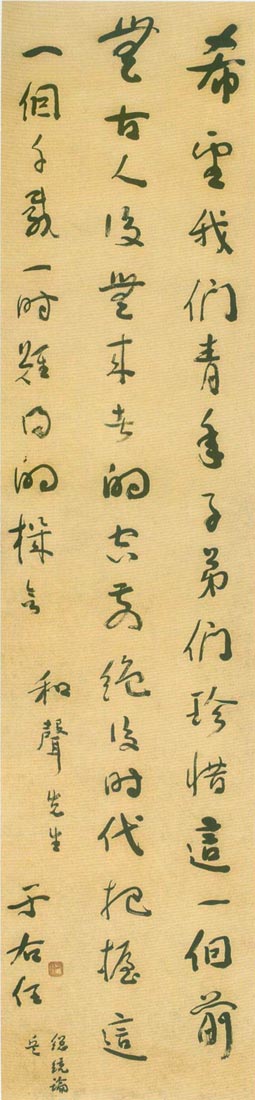 希望我們青年子弟們珍惜這一個前
無古人後無來者的空前絕後時代把握這
一個千載一時難得的機會
和聲先生
于右任
總統論